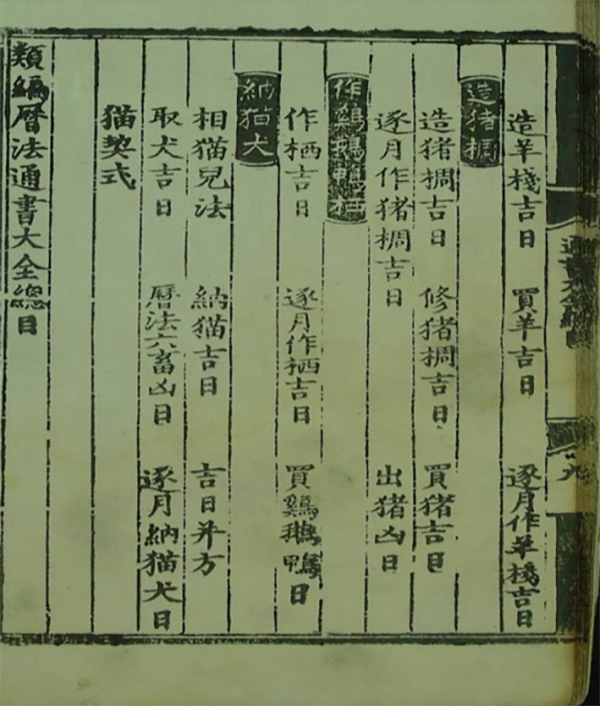 造羊棧吉日 買羊吉日 逐月作羊棧吉日
造猪椆
造猪椆吉日 修猪椆吉日 買猪吉日
逐月作猪椆吉日 出猪凶日
作鷄鵝鴨栖
作栖吉日 逐月作栖吉日 買鷄鵝鴨日
納猫犬
相猫兒法 納猫吉日 吉日并方
取犬吉日 曆法六畜凶日 逐月納猫犬日
猫契式
類編曆法通書大全總目